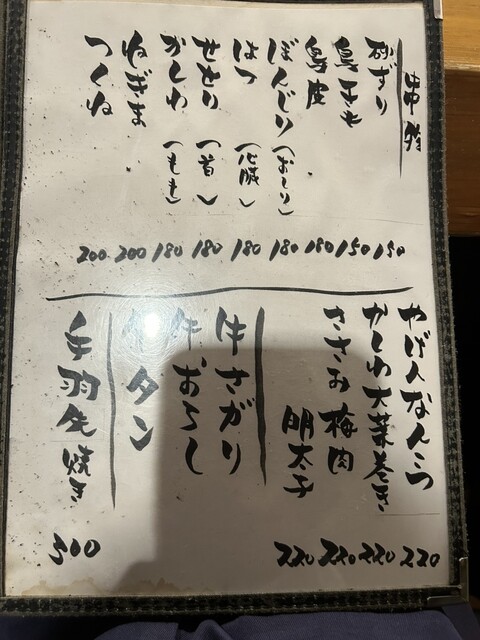 串物
砂ずり 150
鳥キモ 150
鳥皮 180
ぼんじり(おしり) 180
はつ(心臓) 180
せせり(首) 180
かしわ(もも) 180
ねぎま 200
つくね 200
やげんなんこつ 220
かしわ大葉巻き 220
ささみ 梅肉 220
明太子 220
牛さがり
牛おろし
牛タン
手羽先焼き 300